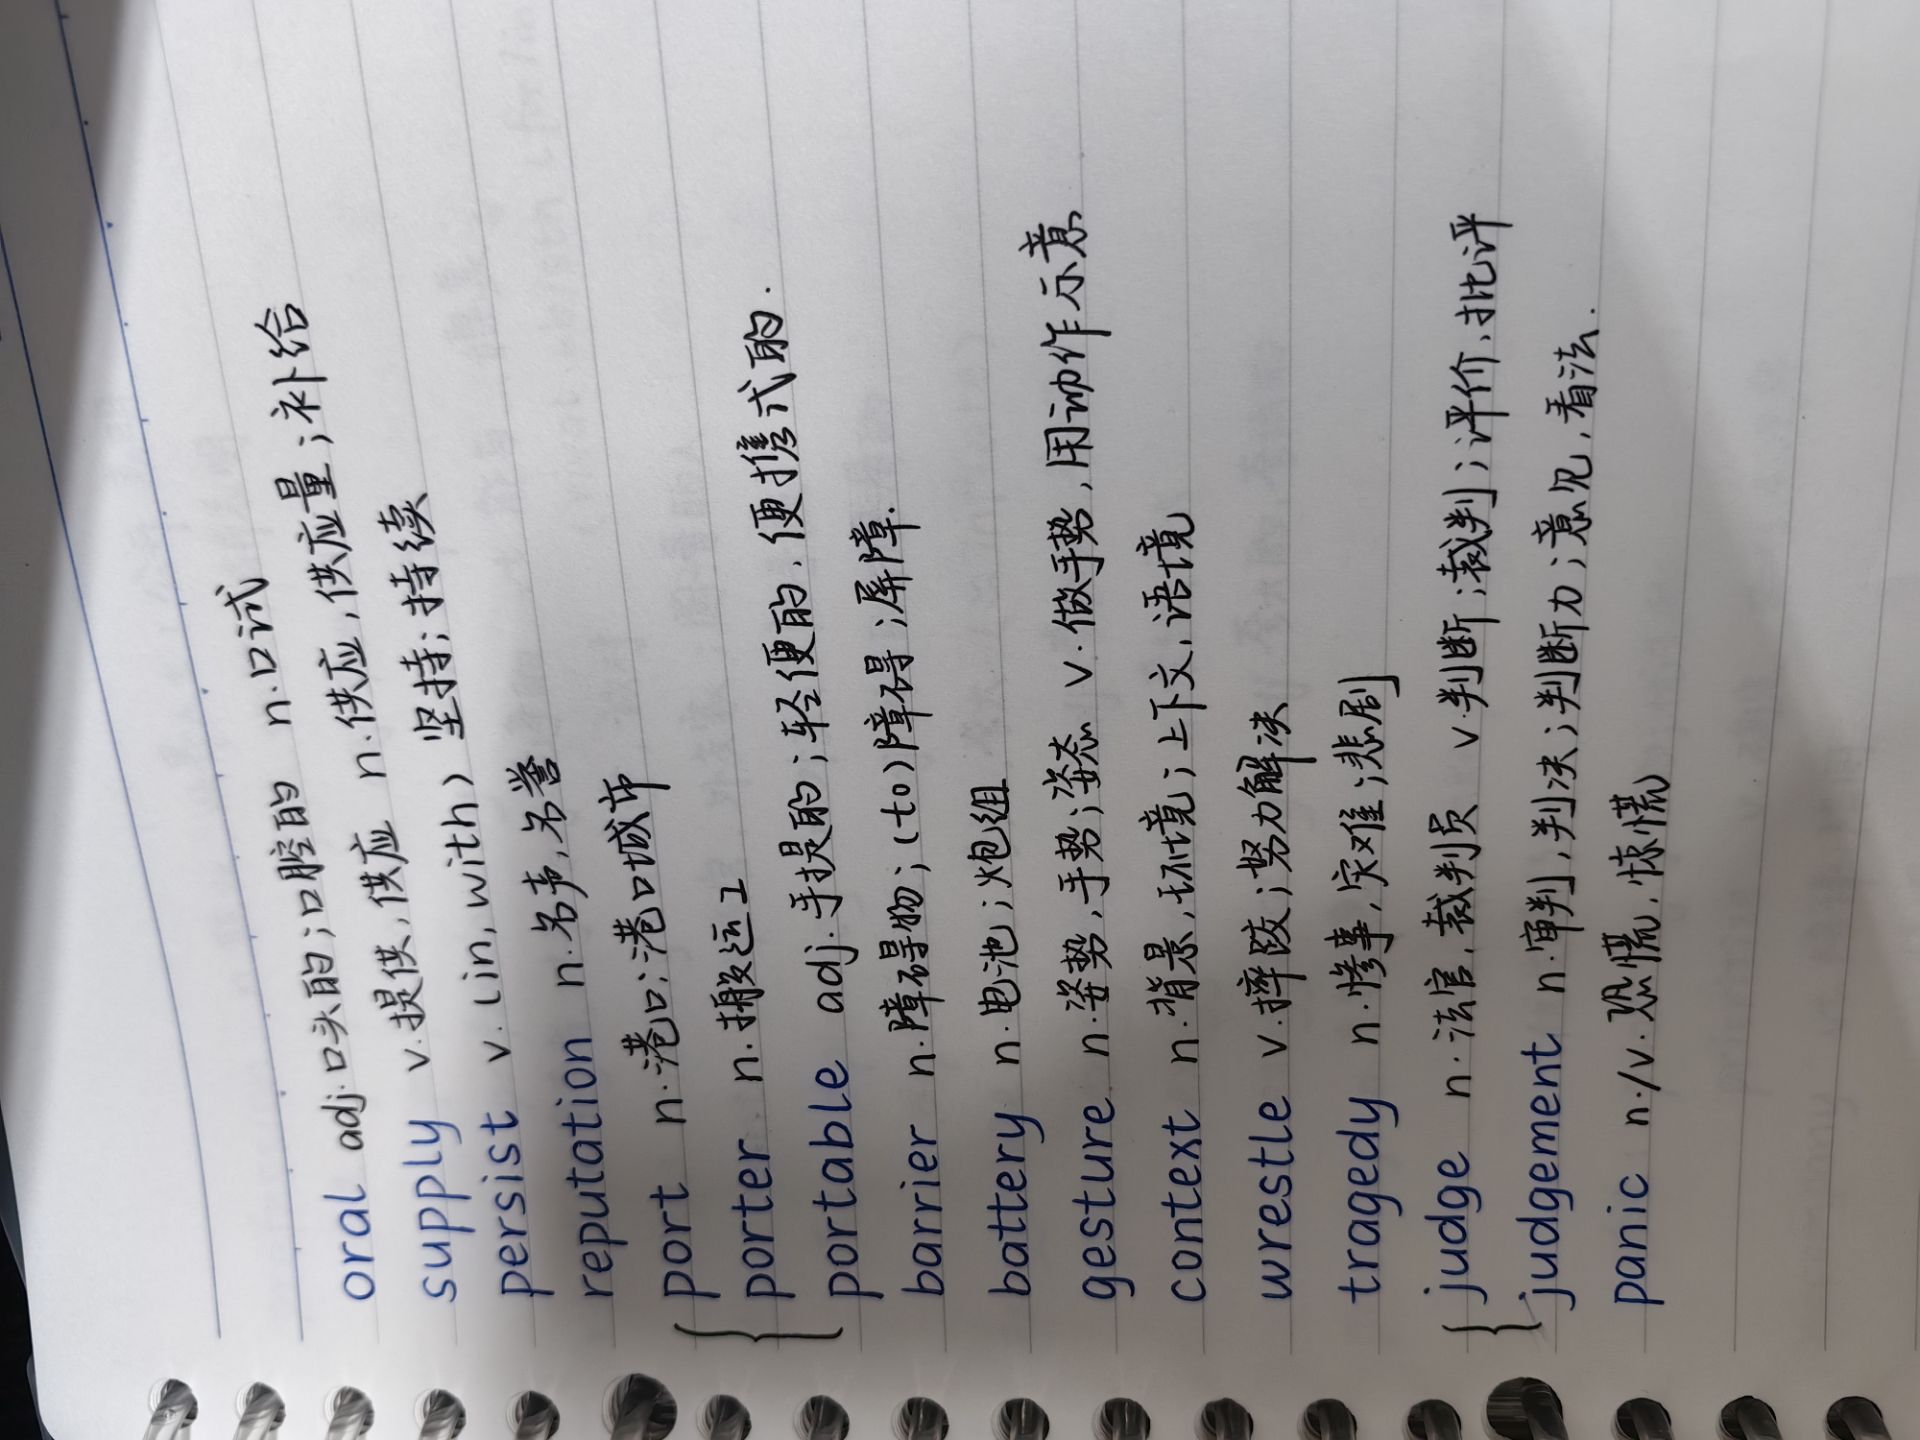 oral adj.口头的；口腔的 n.口试
supply v.提供，供应 n.供应，供应量；补给
persist v.(in, with) 坚持；持续
reputation n.名声，名誉
port n.港口；港口城市
porter n.搬运工
portable adj.手提的；轻便的，便携式的.
barrier n.障碍物；(to)障碍；屏障.
battery n.电池；炮组
gesture n.姿势，手势；姿态 v.做手势，用动作示意
context n.背景，环境；上下文，语境
wrestle v.摔跤；努力解决
tragedy n.惨事，灾难；悲剧
judge n.法官，裁判员 v.判断；裁判；评价，批评
judgement n.审判，判决；判断力；意见，看法.
panic n./v.恐慌，惊慌